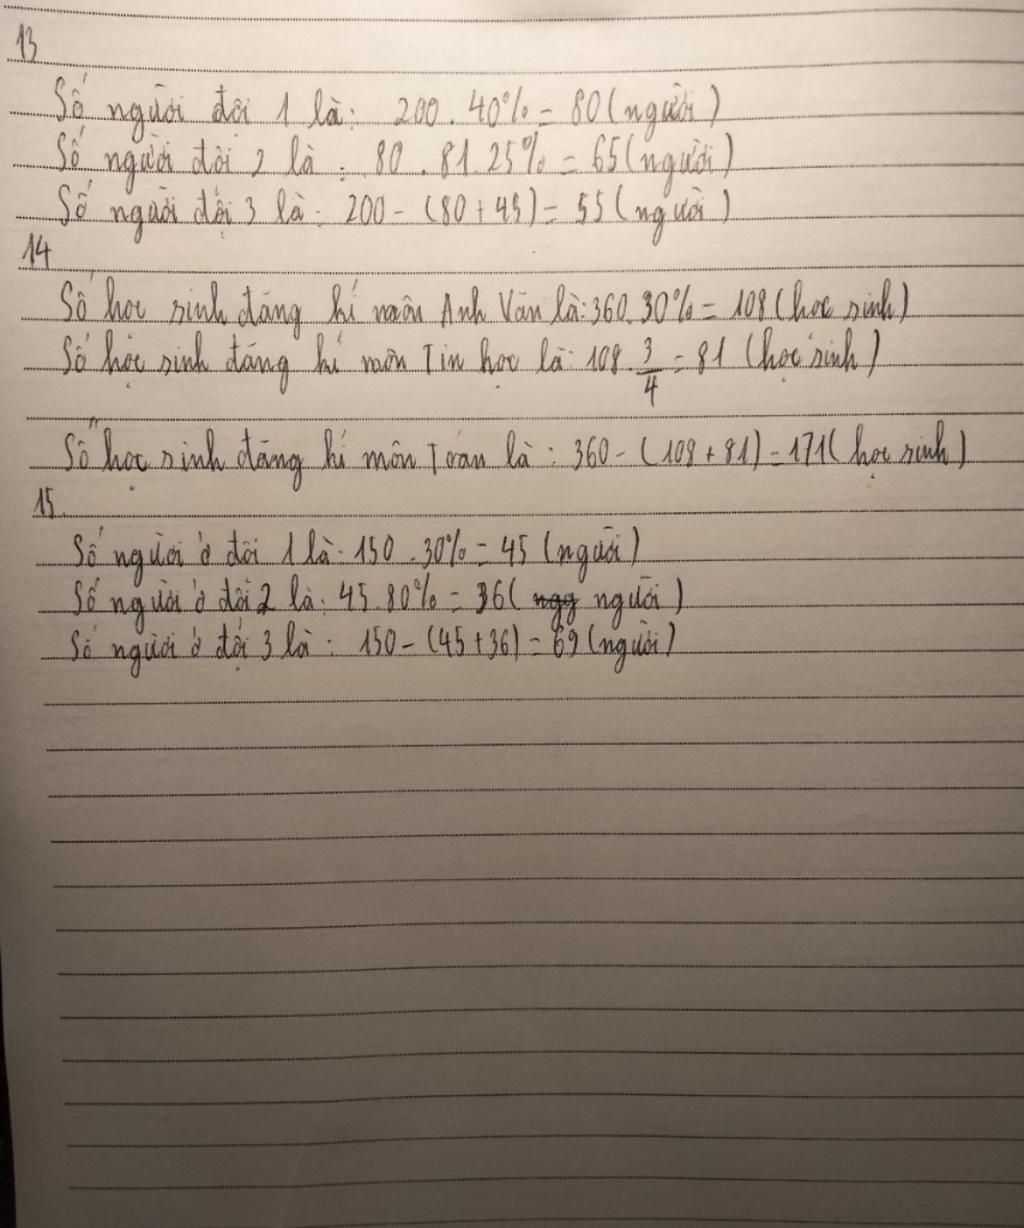 13
Số người đội 1 là: 200 . 40% = 80 (người)
Số người đội 2 là : 80 . 81.25% = 65 (người)
Số người đội 3 là : 200 - (80 + 45) = 55 (người)
14
Số học sinh đăng kí môn Anh Văn là: 360. 30% = 108 (học sinh)
Số học sinh đăng kí môn Tin học là: 108 . 3/4 = 81 (học sinh)
Số học sinh đăng kí môn Toán là : 360 - (108 + 81) = 171 (học sinh)
15.
Số người ở đội 1 là: 150 . 30% = 45 (người)
Số người ở đội 2 là: 45 . 80% = 36 ( người )
Số người ở đội 3 là : 150 - (45 + 36) = 69 (người)